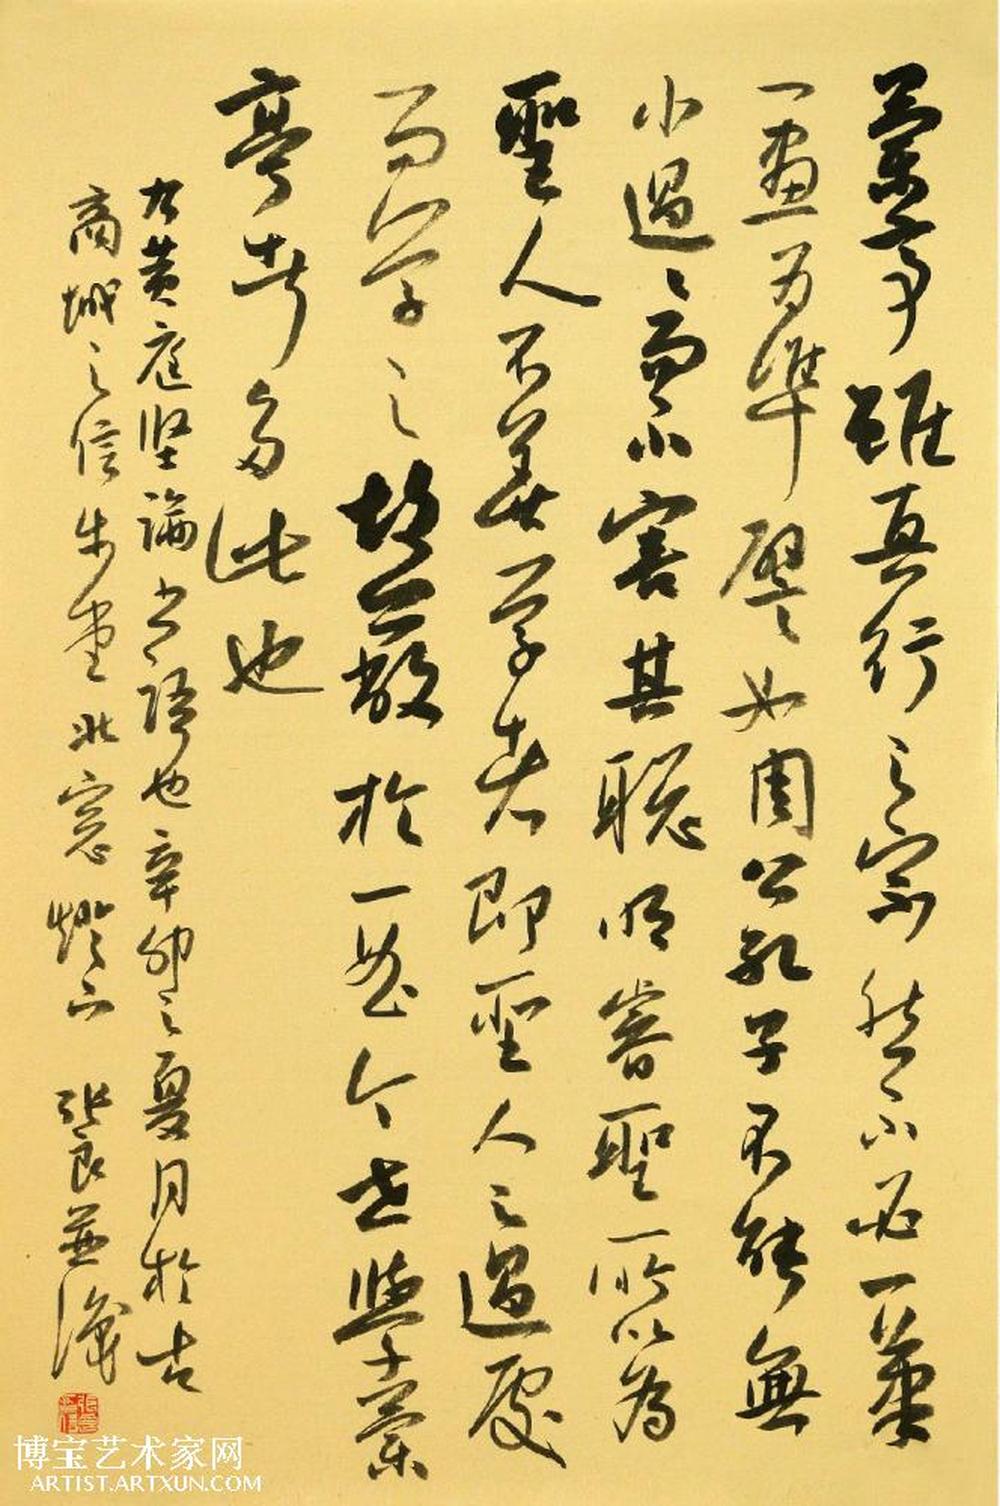 蘭亭雖真行之宗然不必一筆
一畫為準譬如周公孔子不能無
小過過而不害其聰明睿聖所以為
聖人不善學者即聖人之過處
而學之故蔽於一曲今世學蘭
亭者多此也
右黃庭坚論书語也辛卯之夏月於古
商城之信步堂北窓燈下 張良並識
博宝艺术家网
ARTIST.ARTXUN.COM